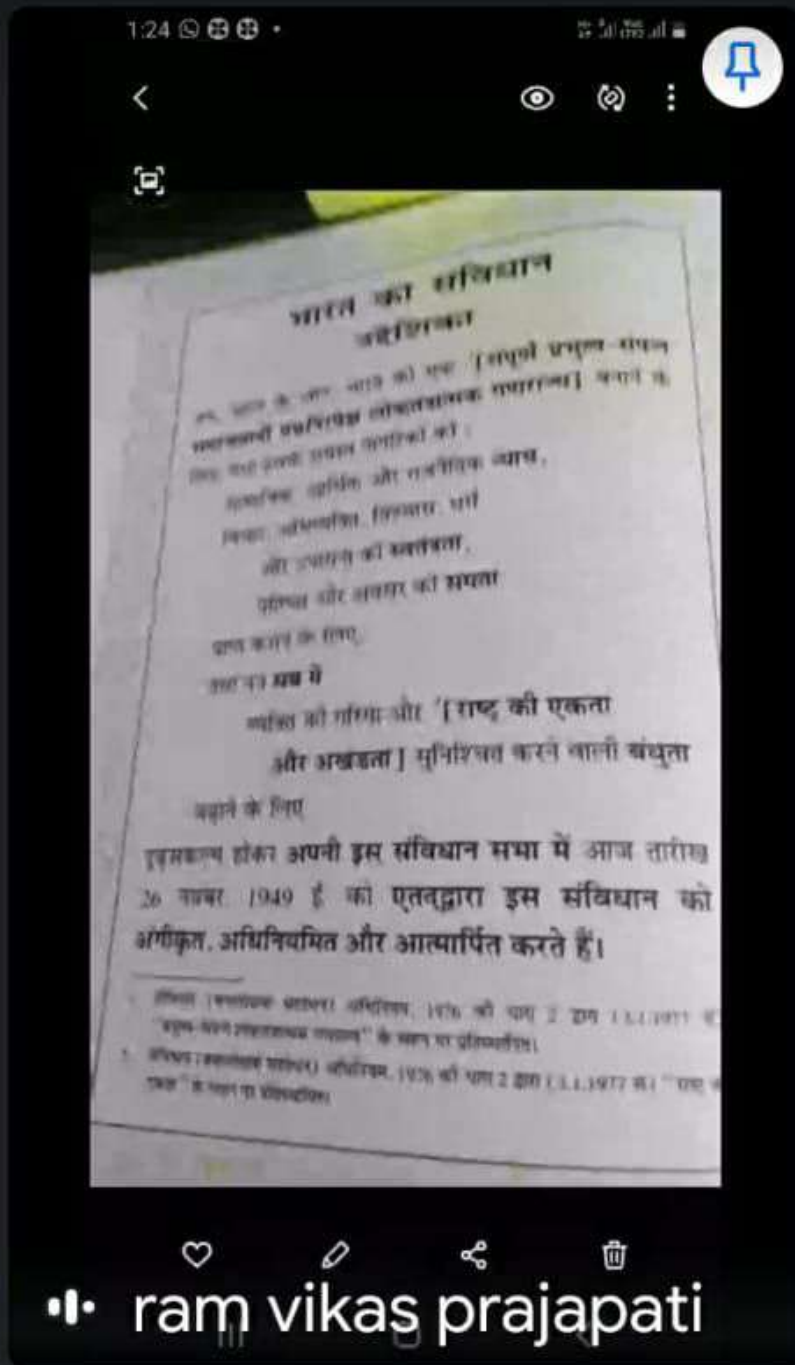 1:24
भारत का संविधान
उद्देशिका
हम, भारत के लोग, भारत को एक ¹[संपूर्ण प्रभुत्व-संपन्न
समाजवादी पंथनिरपेक्ष लोकतंत्रात्मक गणराज्य] बनाने के
लिए, तथा उसके समस्त नागरिकों को :
सामाजिक, आर्थिक और राजनैतिक न्याय,
विचार, अभिव्यक्ति, विश्वास, धर्म
और उपासना की स्वतंत्रता,
प्रतिष्ठा और अवसर की समता
प्राप्त कराने के लिए,
तथा उन सब में
व्यक्ति की गरिमा और ²[राष्ट्र की एकता
और अखंडता] सुनिश्चित करने वाली बंधुता
बढ़ाने के लिए
दृढ़संकल्प होकर अपनी इस संविधान सभा में आज तारीख
26 नवंबर, 1949 ई. को एतद्द्वारा इस संविधान को
अंगीकृत, अधिनियमित और आत्मार्पित करते हैं।
1976 की धारा 2 द्वारा (3.1.1977
के स्थान पर प्रतिस्थापित।
अधिनियम, 1976 की धारा 2 द्वारा (3.1.1977 से)
के स्थान पर प्रतिस्थापित।
ram vikas prajapati